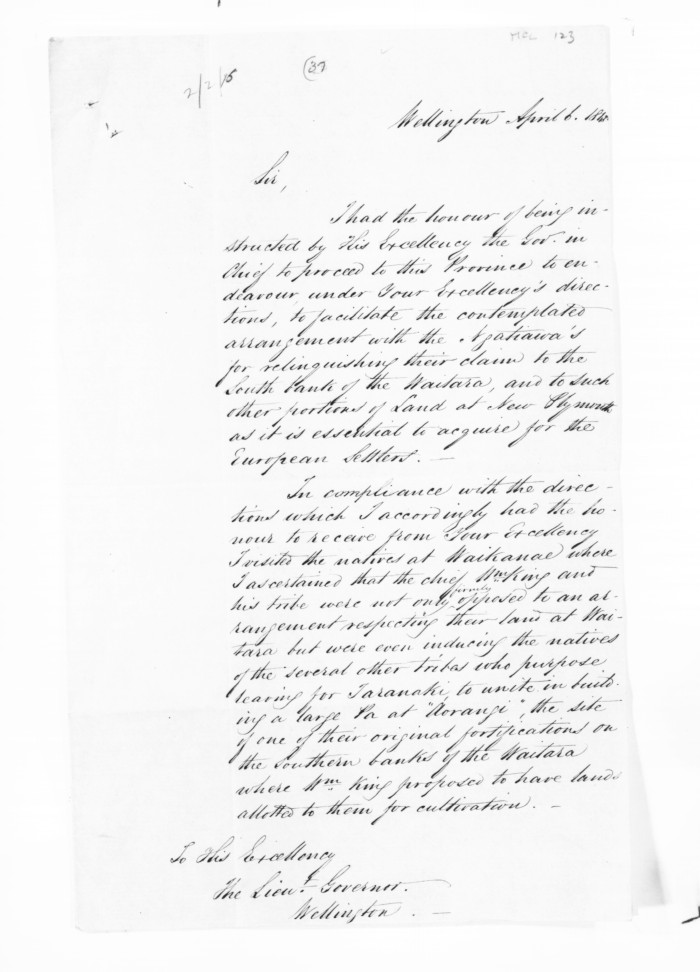 MCL 123
2/2/15
37
Wellington April 6. 184
Sir,
I had the honour of being in-
structed by His Excellency the Gov. in
Chief to proceed to this Province to en-
deavour, under Your Excellency's direc-
tions, to facilitate the contemplated
arrangement with the Ngatiawa's
for relinquishing their claim to the
South bank of the Waitara, and to such
other portions of Land at New Plymouth
as it is essential to acquire for the
European Settlers. —
In compliance with the direc-
tions which I accordingly had the ho-
nour to receive from Your Excellency
I visited the natives at Waikanae where
I ascertained that the chief Wm King and
his tribe were not only firmly opposed to an ar-
rangement respecting their land at Wai-
tara but were even inducing the natives
of the several other tribes who purpose
leaving for Taranaki, to unite in build-
ing a large Pa at "Aorangi", the site
of one of their original fortifications on
the southern banks of the Waitara
where Wm. King proposed to have lands
allotted to them for cultivation. —
To His Excellency
The Lieut. Governor.
Wellington. —